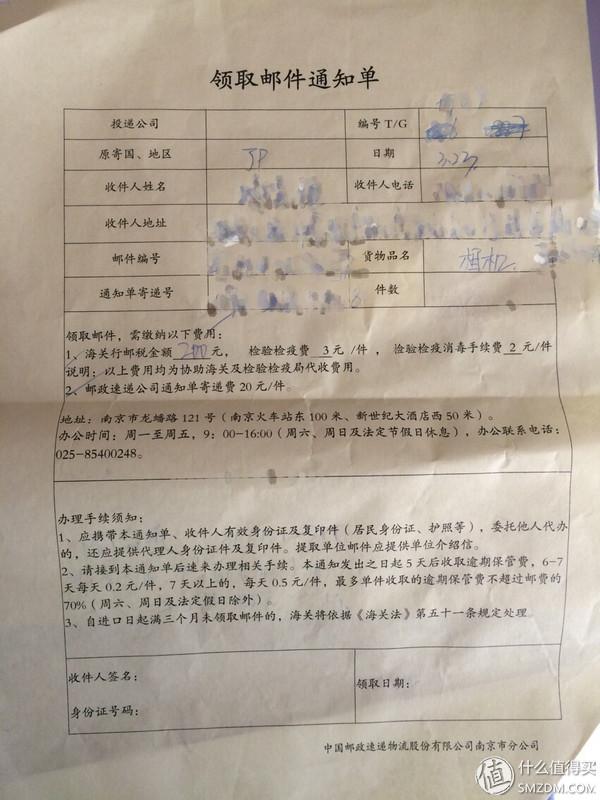 领取邮件通知单
投递公司 编号T/G
原寄国、地区 JP 日期 3.23
收件人姓名 收件人电话
收件人地址
邮件编号 货物品名 相机
通知单寄递号 件数
领取邮件，需缴纳以下费用：
1、海关行邮税金额 200 元， 检验检疫费 3 元 /件 ， 检验检疫消毒手续费 2 元/件
说明：以上费用均为协助海关及检验检疫局代收费用。
2、邮政速递公司通知单寄递费 20 元/件。
地址：南京市龙蟠路 121 号（南京火车站东 100 米、新世纪大酒店西 50 米）。
办公时间：周一至周五，9：00-16:00（周六、周日及法定节假日休息），办公联系电话：
025-85400248。
办理手续须知：
1、应携带本通知单、收件人有效身份证及复印件（居民身份证、护照等），委托他人代办
的，还应提供代理人身份证件及复印件。提取单位邮件应提供单位介绍信。
2、请接到本通知单后速来办理相关手续。本通知发出之日起 5 天后收取逾期保管费，6-7
天每天 0.2 元/件，7 天以上的，每天 0.5 元/件，最多单件收取的逾期保管费不超过邮费的
70%（周六、周日及法定假日除外）。
3、自进口日起满三个月未领取邮件的，海关将依据《海关法》第五十一条规定处理。
收件人签名： 领取日期：
身份证号码：
中国邮政速递物流股份有限公司南京市分公司
值 什么值得买
SMZDM.COM